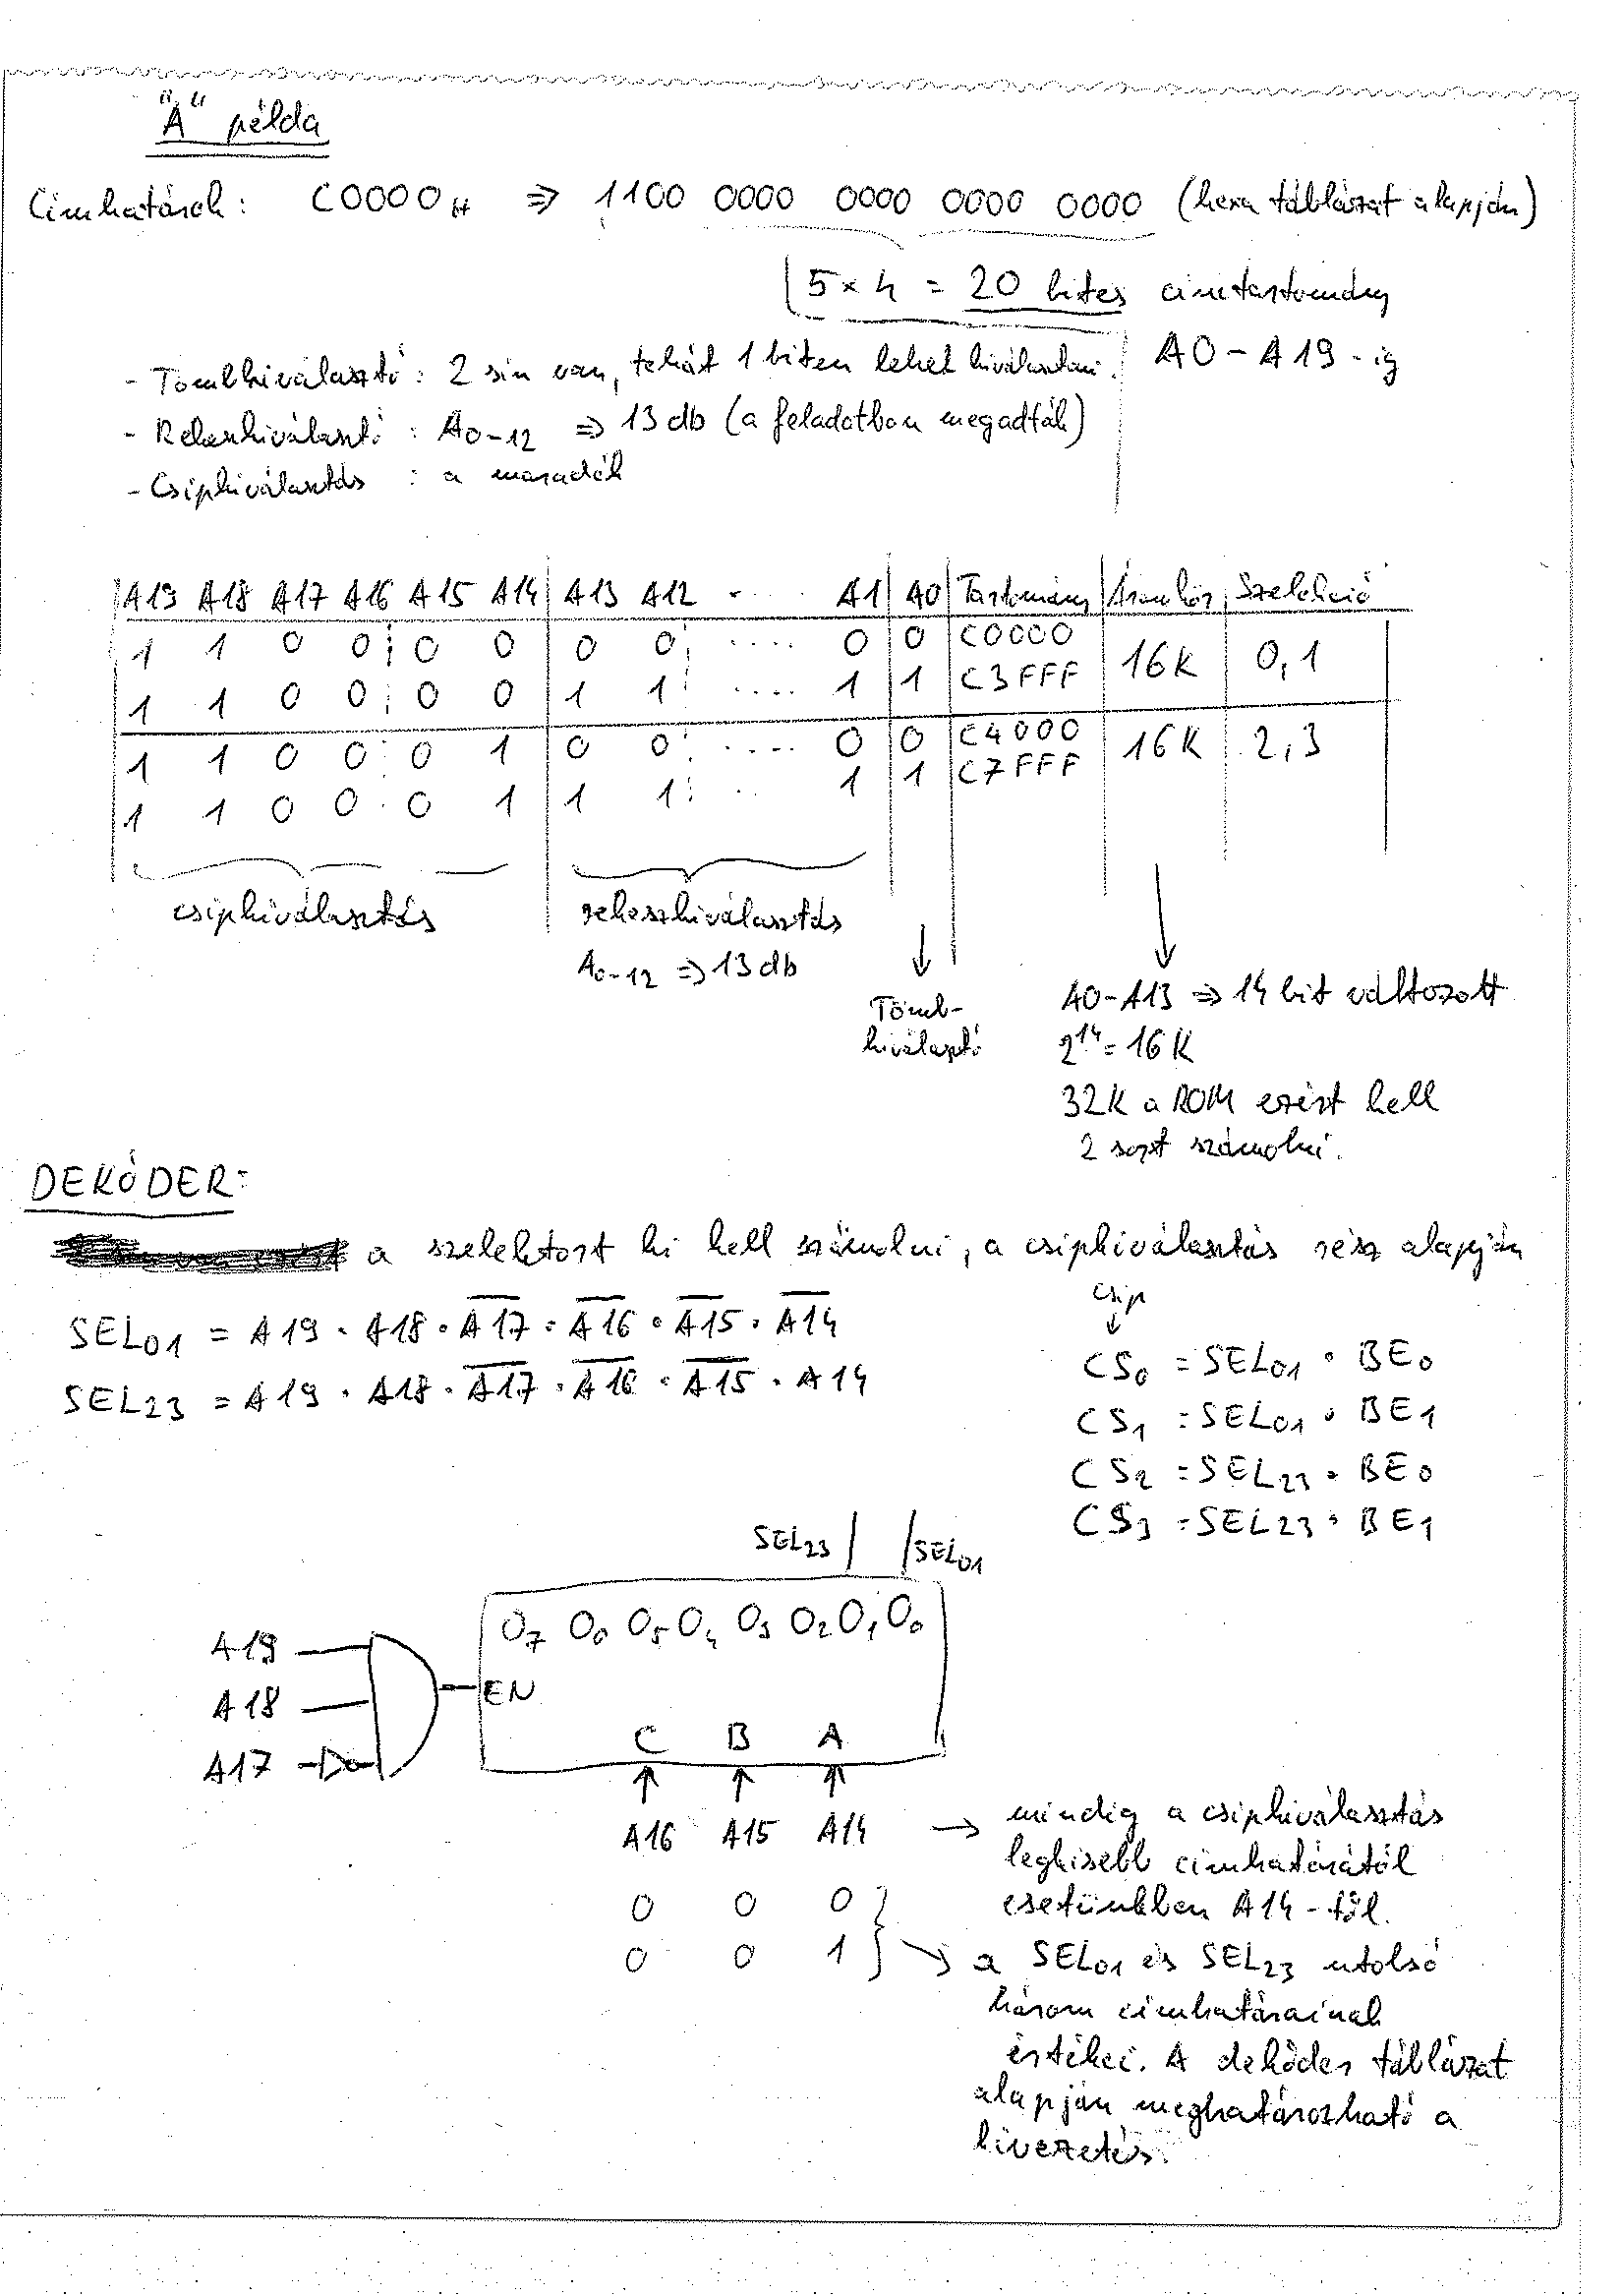 "A" példa
Címhatárok: C0000H ⇒ 1100 0000 0000 0000 0000 (hexa táblázat alapján)
5 × 4 = 20 bites címtartomány
A0 - A19 - ig
- Tömbkiválasztó: 2 sín van, tehát 1 biten lehet kiválasztani.
- Rekeszkiválasztó: A0-12 ⇒ 13 db (a feladatban megadták)
- Csipkiválasztás : a maradék
A19 A18 A17 A16 A15 A14 A13 A12 ..... A1 A0 Tartomány Áramkör Szelekció
1 1 0 0 0 0 0 0 .... 0 0 C0000 16K 0,1
1 1 0 0 0 0 1 1 .... 1 1 C3FFF
1 1 0 0 0 1 0 0 .... 0 0 C4000 16K 2,3
1 1 0 0 0 1 1 1 .. 1 1 C7FFF
csipkiválasztás
rekeszkiválasztás
A0-12 ⇒ 13 db
Tömb-
kiválasztó
A0-A13 ⇒ 14 bit változott
2^14 = 16 K
32K a ROM ezért kell
2 sort számolni.
DEKÓDER:
a szelektort ki kell számolni, a csipkiválasztás rész alapján
SEL01 = A19 · A18 · A̅1̅7̅ · A̅1̅6̅ · A̅1̅5̅ · A̅1̅4̅
SEL23 = A19 · A18 · A̅1̅7̅ · A̅1̅6̅ · A̅1̅5̅ · A14
csip
↓
CS0 = SEL01 · BE0
CS1 = SEL01 · BE1
CS2 = SEL23 · BE0
CS3 = SEL23 · BE1
SEL23 SEL01
O7 O6 O5 O4 O3 O2 O1 O0
A19
A18
A17
EN
C B A
A16 A15 A14
0 0 0
0 0 1
→ mindig a csipkiválasztás
legkisebb címhatárától
esetünkben A14-től.
→ a SEL01 és SEL23 utolsó
három címhatárainak
értékei. A dekóder táblázat
alapján meghatározható a
kivezetés.